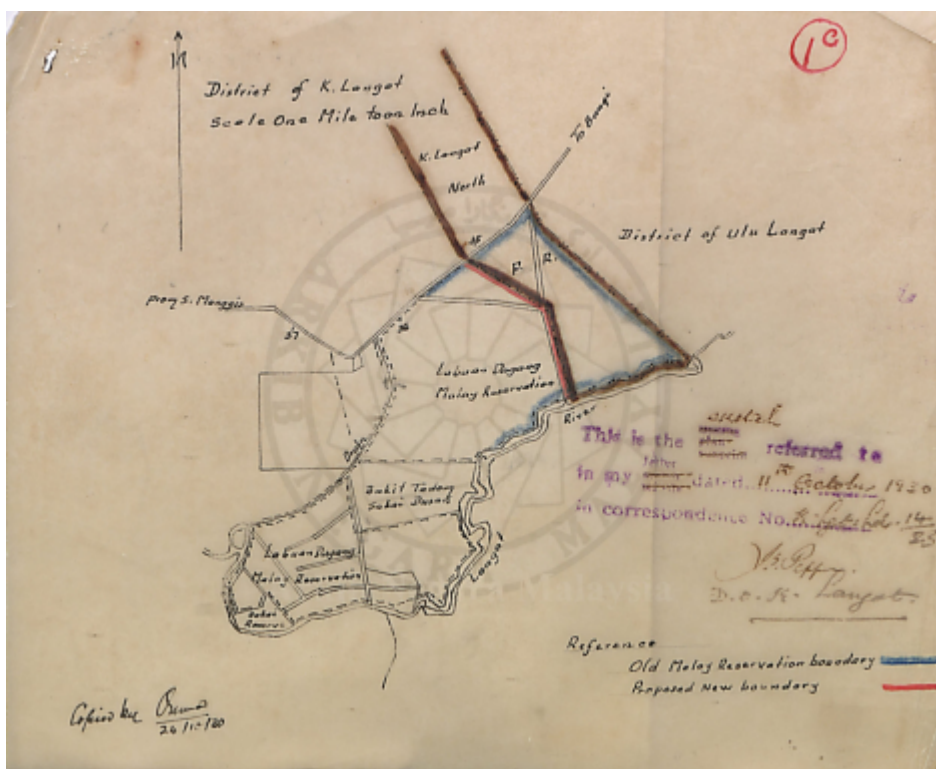 1C
N
District of K. Langat
Scale One Mile to an Inch
K. Langat
North
To Bangi
District of Ulu Langat
From S. Manggis
37
36
35
F. R.
Labuan Dagang
Malay Reservation
River
Bukit Tadom
Sakai
Langat
Labuan Dagang
Malay Reservation
Sakai
Reserve
sketch
This is the referred to
in my letter dated 11th October 1930
in correspondence No.
D.O. K. Langat.
Reference
Old Malay Reservation boundary
Proposed New boundary
Copied by